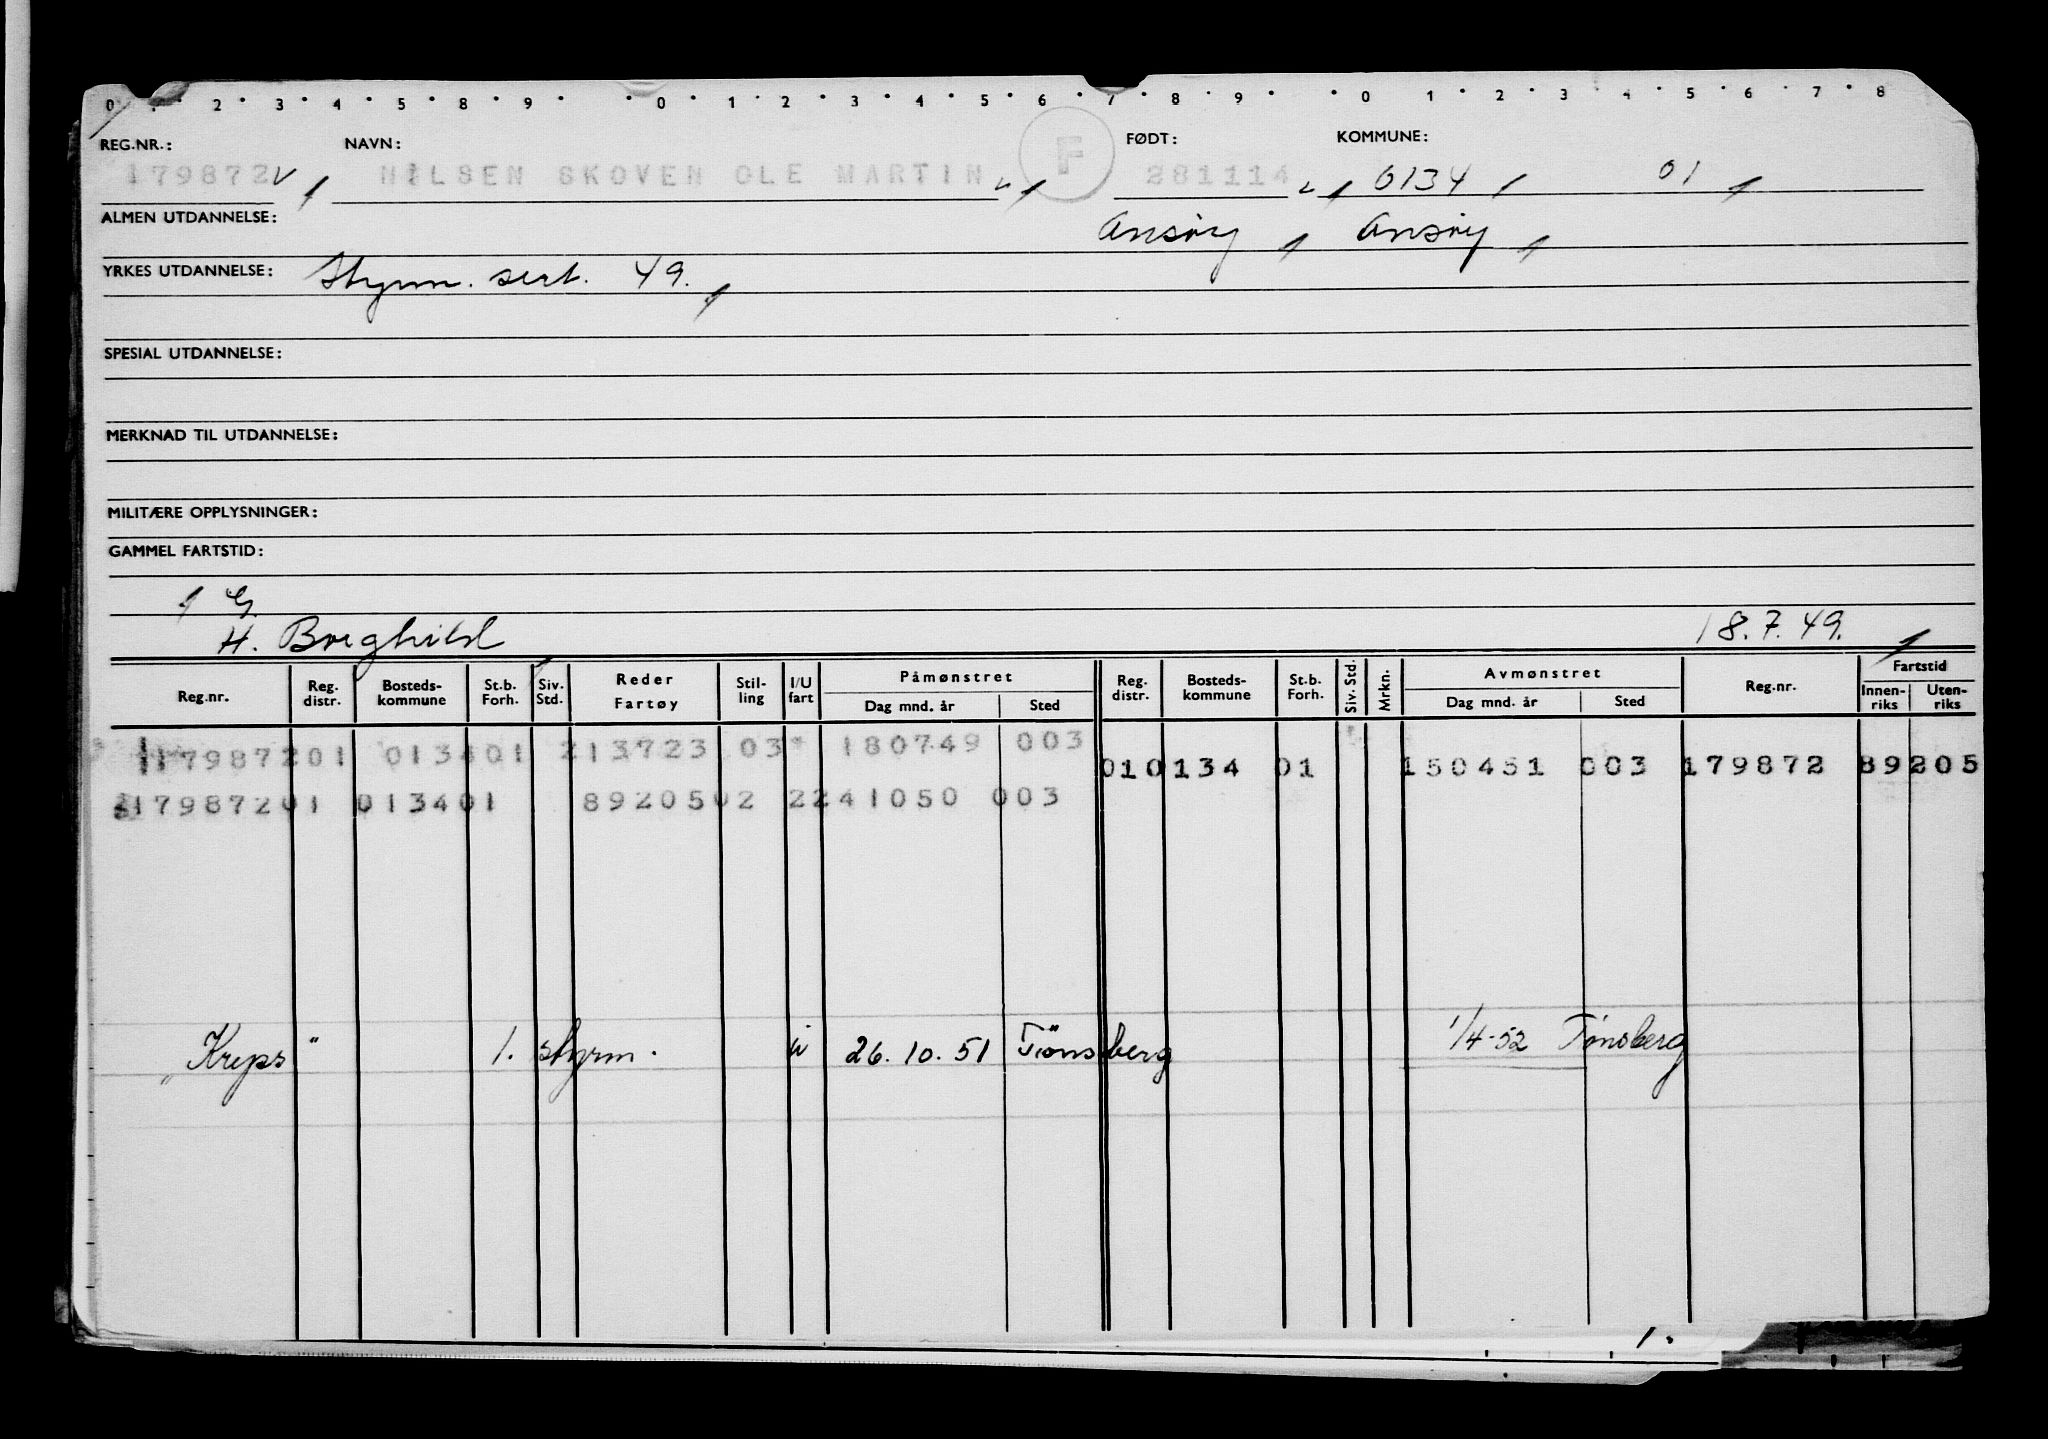 0 1 2 3 4 5 8 9 0 1 2 3 4 5 6 7 8 9 0 1 2 3 4 5 6 7 8
REG.NR.: NAVN: F FØDT: KOMMUNE:
179872 NILSEN SKOVEN OLE MARTIN 281114 0134 01
ALMEN UTDANNELSE: Onsøy Onsøy
YRKES UTDANNELSE: Styrm. sert. 49.
SPESIAL UTDANNELSE:
MERKNAD TIL UTDANNELSE:
MILITÆRE OPPLYSNINGER:
GAMMEL FARTSTID:
H. Borghild 18.7.49.
Reg.nr. Reg. distr. Bosteds-kommune St.b. Forh. Siv. Std. Reder Fartøy Stil-ling I/U fart Påmønstret Dag mnd. år Sted Reg. distr. Bosteds-kommune St.b. Forh. Siv. Std. Mrkn. Avmønstret Dag mnd. år Sted Reg.nr. Fartstid Innen-riks Uten-riks
17987201 013401 213723 03 180749 003
010134 01 150451 003 179872 89205
17987201 013401 8920502 2241050 003
"Kreps" 1. styrm. u 26.10.51 Tønsberg 1/4-52 Tønsberg
1.